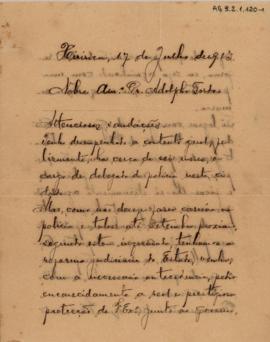 AG 9.2.1.120-1
17 de Julho de 913
Nobre Amº Dr. Adolpho Gordo
Attenciosas saudações
Tenho desempenhado a contento geral, pu-
blicamente, ha cerca de seis mezes, o
cargo de delegado de policia nesta ci-
dade.
Mas, como
policia e talvez até Setembro proximo,
segundo estou informado, tenhamos a
reforma judiciaria do Estado, venho,
com a necessaria antecedencia, pedir
encarecidamente a real e prestigiosa
protecção de V. Exª junto ao governo,